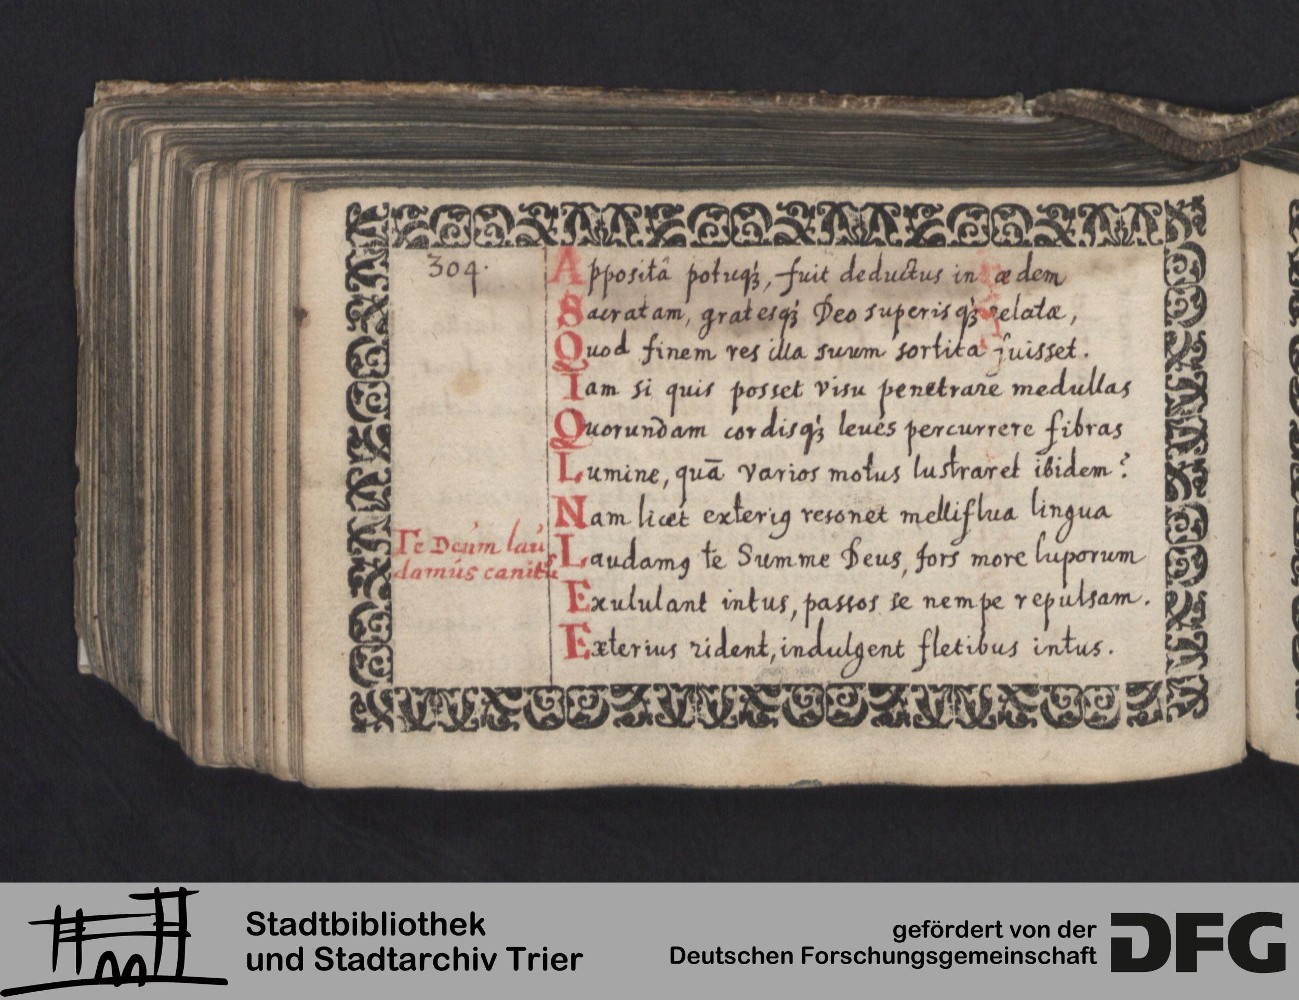 304.
Apposita potuqꝫ, fuit deductus in ædem
Sacratam, gratesqꝫ Deo superisqꝫ relatæ,
Quod finem res illa suum sortita fuisset.
Iam si quis posset visu penetrare medullas
Quorundam cordisqꝫ leues percurrere fibras
Lumine, quā varios motus lustraret ibidem?
Nam licet exteriꝰ resonet melliflua lingua
Te Deum lau
damus canit
Laudamꝰ te Summe Deus, fors more luporum
Exululant intus, passos se nempe repulsam.
Exterius rident, indulgent fletibus intus.
Stadtbibliothek
und Stadtarchiv Trier
gefördert von der
Deutschen Forschungsgemeinschaft
DFG